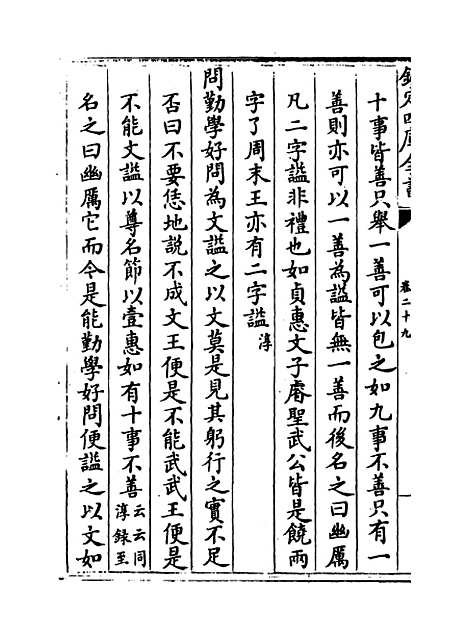 欽定四庫全書
卷二十九
十事皆善只舉一善可以包之如九事不善只有一
善則亦可以一善為諡皆無一善而後名之曰幽厲
凡二字諡非禮也如貞惠文子睿聖武公皆是饒兩
字了周末王亦有二字諡淳
問勤學好問為文諡之以文莫是見其躬行之實不足
否曰不要恁地說不成文王便是不能武武王便是
不能文諡以尊名節以壹惠如有十事不善云云同淳錄至
名之曰幽厲它而今是能勤學好問便諡之以文如